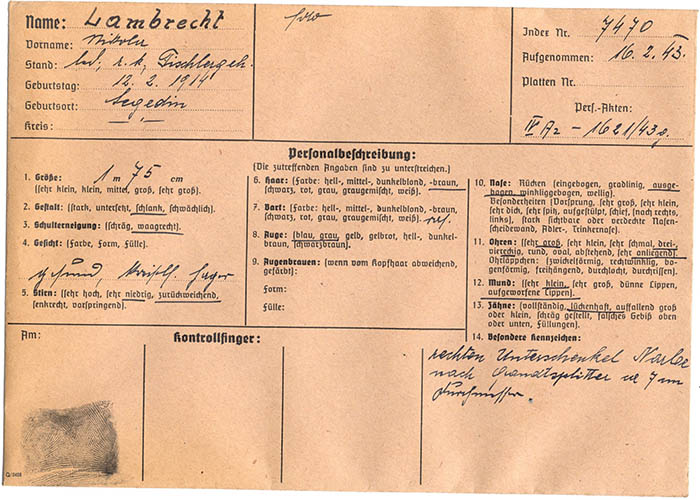 Name: Lambrecht
Vorname: Nikola
Stand: led, r.k, Tischlergeh.
Geburtstag: 12. 2. 1914
Geburtsort: Segedin
Kreis: — " —
Index Nr. 7470
Aufgenommen: 16. 2. 43.
Platten Nr.
Pers.-Akten:
IV A2 – 1621/43 g.
Personalbeschreibung:
(Die zutreffenden Angaben sind zu unterstreichen.)
1. Größe: 1 m 75 cm
(sehr klein, klein, mittel, groß, sehr groß).
2. Gestalt: (stark, untersetzt, schlank, schwächlich).
3. Schulterneigung: (schräg, waagrecht).
4. Gesicht: (Farbe, Form, Fülle).
gesund,
5. Stirn: (sehr hoch, sehr niedrig, zurückweichend,
senkrecht, vorspringend).
6. Haar: (Farbe: hell-, mittel-, dunkelblond, -braun,
schwarz, rot, grau, graugemischt, weiß).
7. Bart: (Farbe: hell-, mittel-, dunkelblond, -braun,
schwarz, rot, grau, graugemischt, weiß).
8. Auge: (blau, grau, gelb, gelbrot, hell-, dunkel-
braun, schwarzbraun).
9. Augenbrauen: (wenn vom Kopfhaar abweichend,
gefärbt):
Form:
Fülle:
10. Nase: Rücken (eingebogen, gradlinig, ausge-
bogen, winkliggebogen, wellig).
Besonderheiten (Vorsprung, sehr groß, sehr klein,
sehr dick, sehr spitz, aufgestülpt, schief, (nach rechts,
links), stark sichtbare oder verdeckte Nasen-
scheidewand, Adler-, Trinkernase).
11. Ohren: (sehr groß, sehr klein, sehr schmal, drei-,
viereckig, rund, oval, abstehend, sehr anliegend).
Ohrläppchen: (zwickelförmig, rechtwinklig, bo-
genförmig, freihängend, durchlocht, durchrissen).
12. Mund: (sehr klein, sehr groß, dünne Lippen,
aufgeworfene Lippen).
13. Zähne: (vollständig, lückenhaft, auffallend groß
oder klein, schräg gestellt, falsches Gebiß oben
oder unten, Füllungen).
14. Besondere Kennzeichen:
rechten Unterschenkel Narbe
nach Granatsplitter 7 cm
Durchmesser.
Am:
Kontrollfinger: